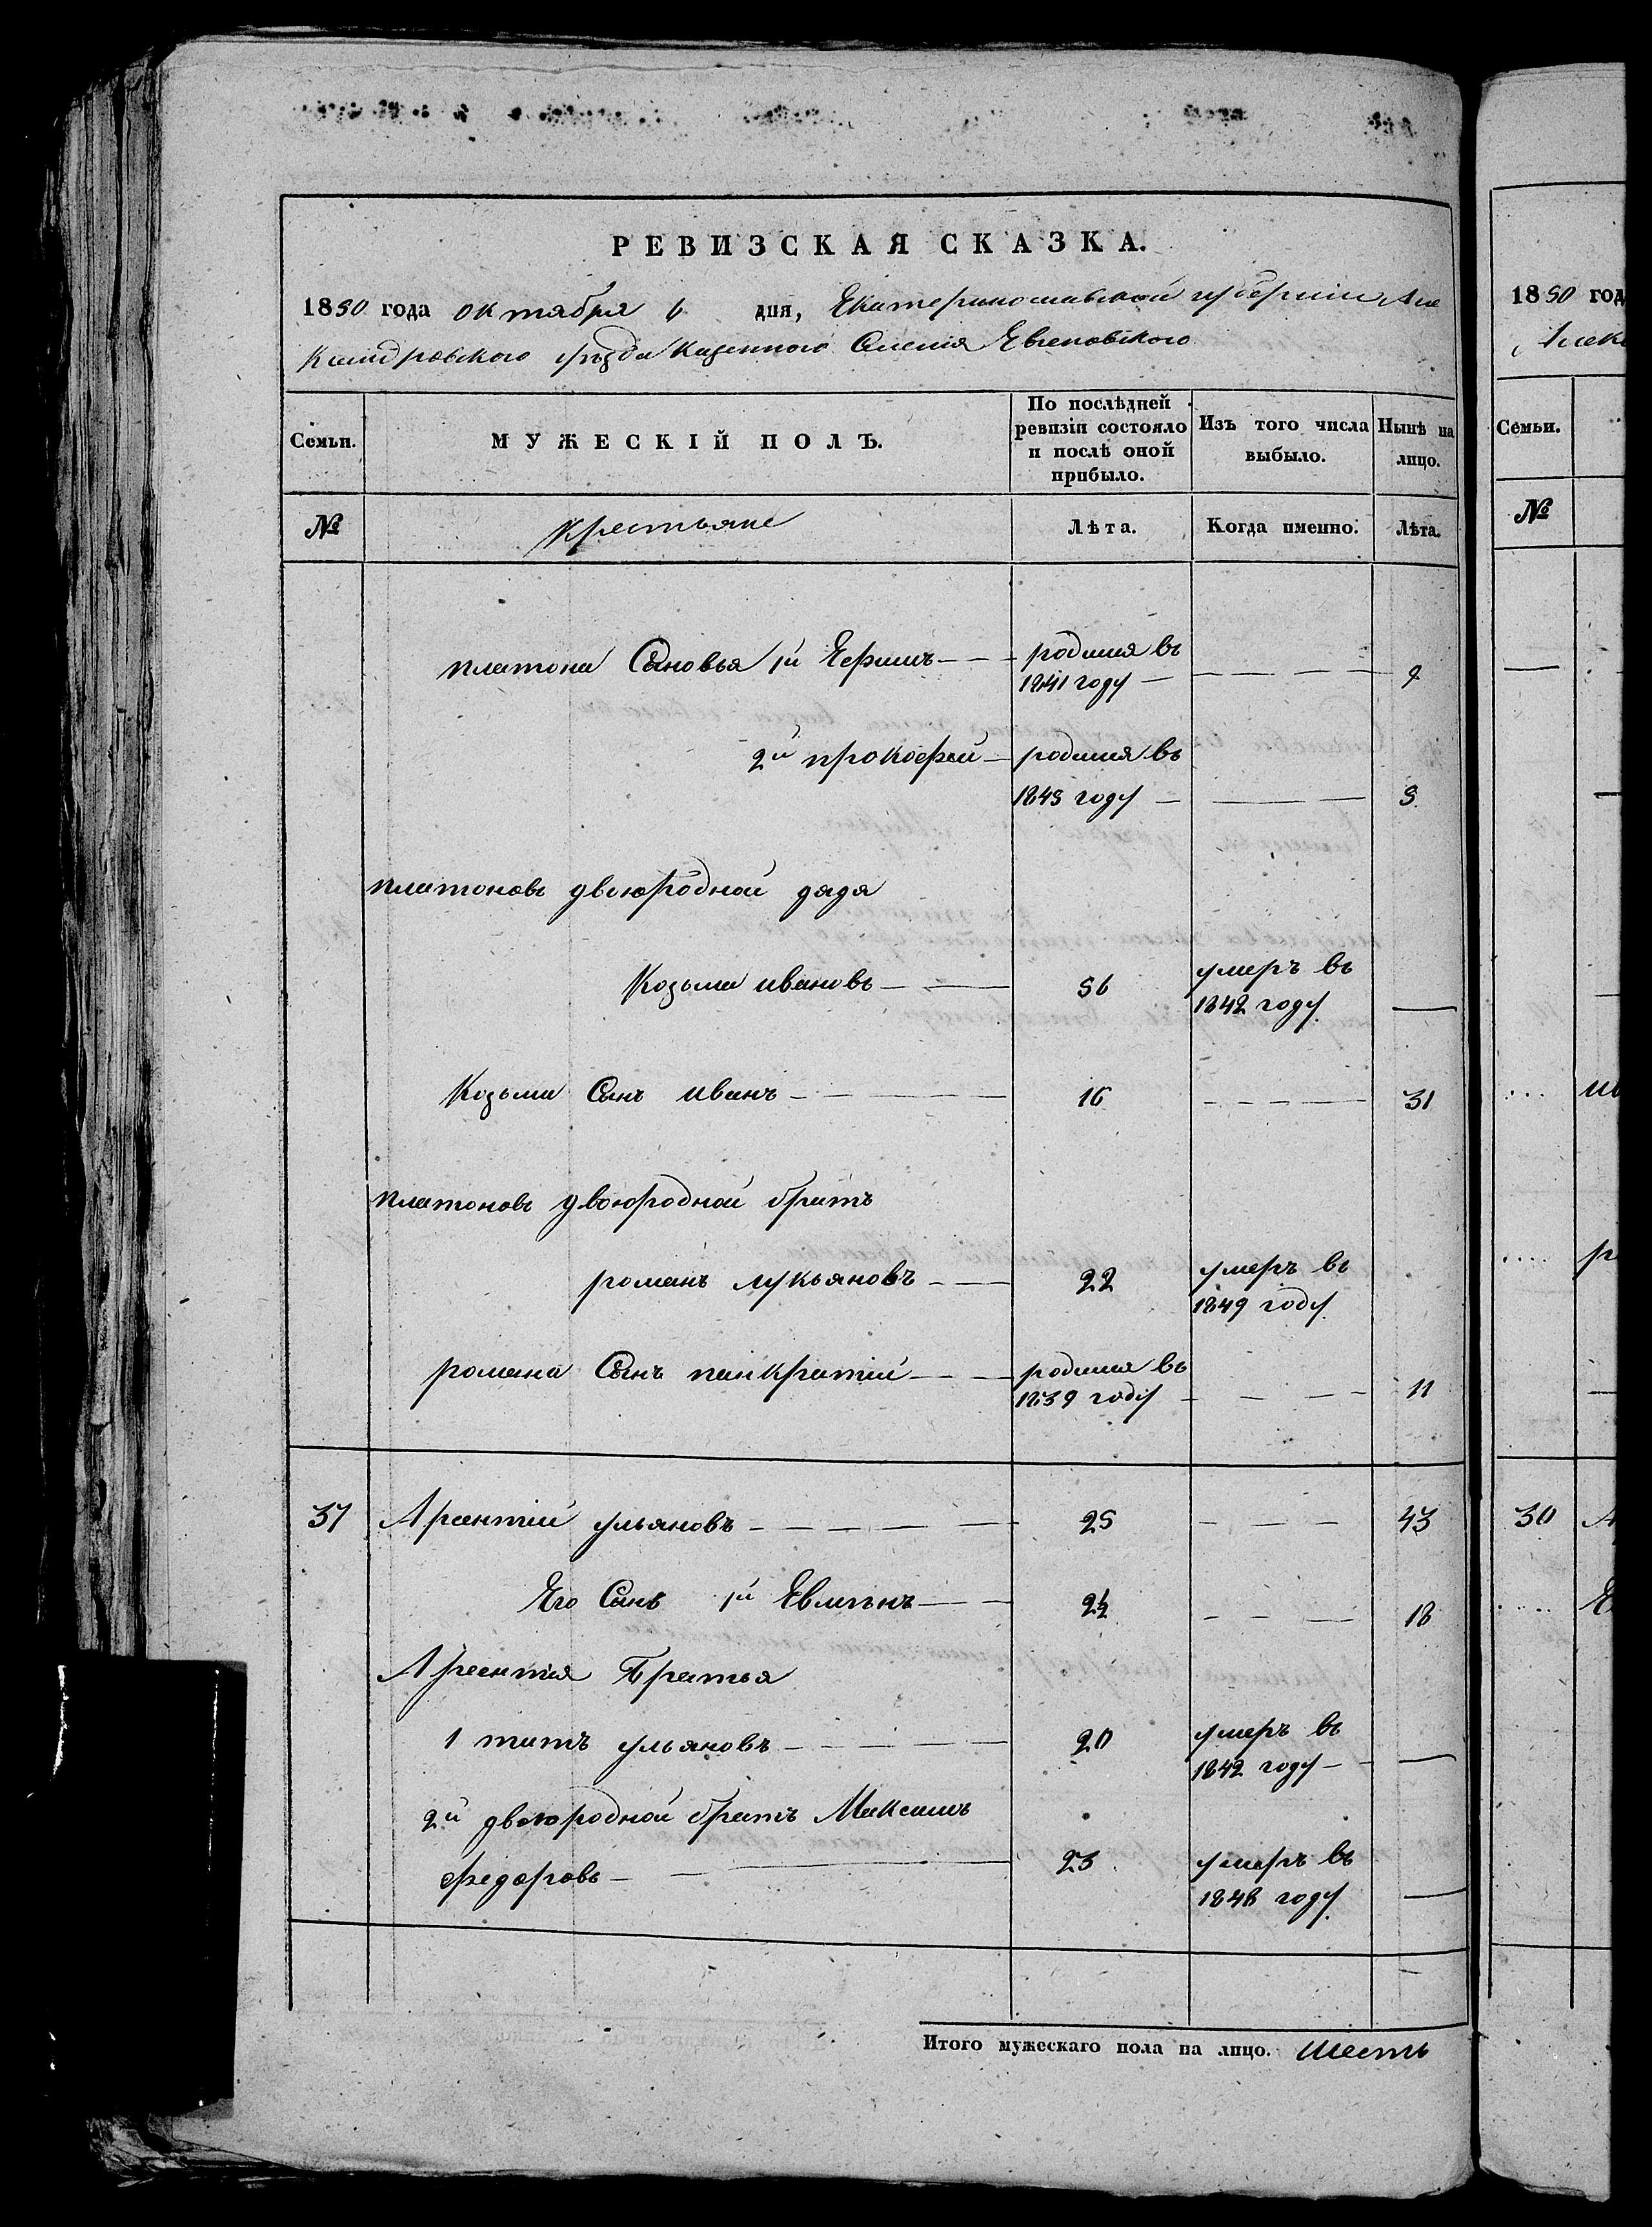 РЕВИЗСКАЯ СКАЗКА.
1850 года октября 6 дня, Екатеринославской губернии Але
ксандровского уѣзда казенного Селения Евгеновского
Семьи. МУЖЕСКІЙ ПОЛЪ. По послѣдней ревизіи состояло и послѣ оной прибыло. Изъ того числа выбыло. Нынѣ на лицо.
№ Крестьяне Лѣта. Когда именно. Лѣта.
платона Сыновья 1й Ефимъ родился въ
1841 году 9
2й прокофей родился въ
1845 году 5
платоновъ двоюродной дядя
Козьма ивановъ 56 умеръ въ
1842 году
Козьма Сынъ иванъ 16 31
платоновъ двоюродной братъ
романъ лукьяновъ 22 умеръ въ
1849 году
романа Сынъ панкратій родился въ
1839 году 11
37 Арсентій ульяновъ 25 43
Его Сынъ 1й 2½ 18
Арсентия Братья
1 титъ ульяновъ 20 умеръ въ
1842 году
2й двоюродной братъ Максимъ
федоровъ 23 умеръ въ
1848 году
Итого мужескаго пола на лицо. шесть
1850 год
Алек
Семьи.
№
30